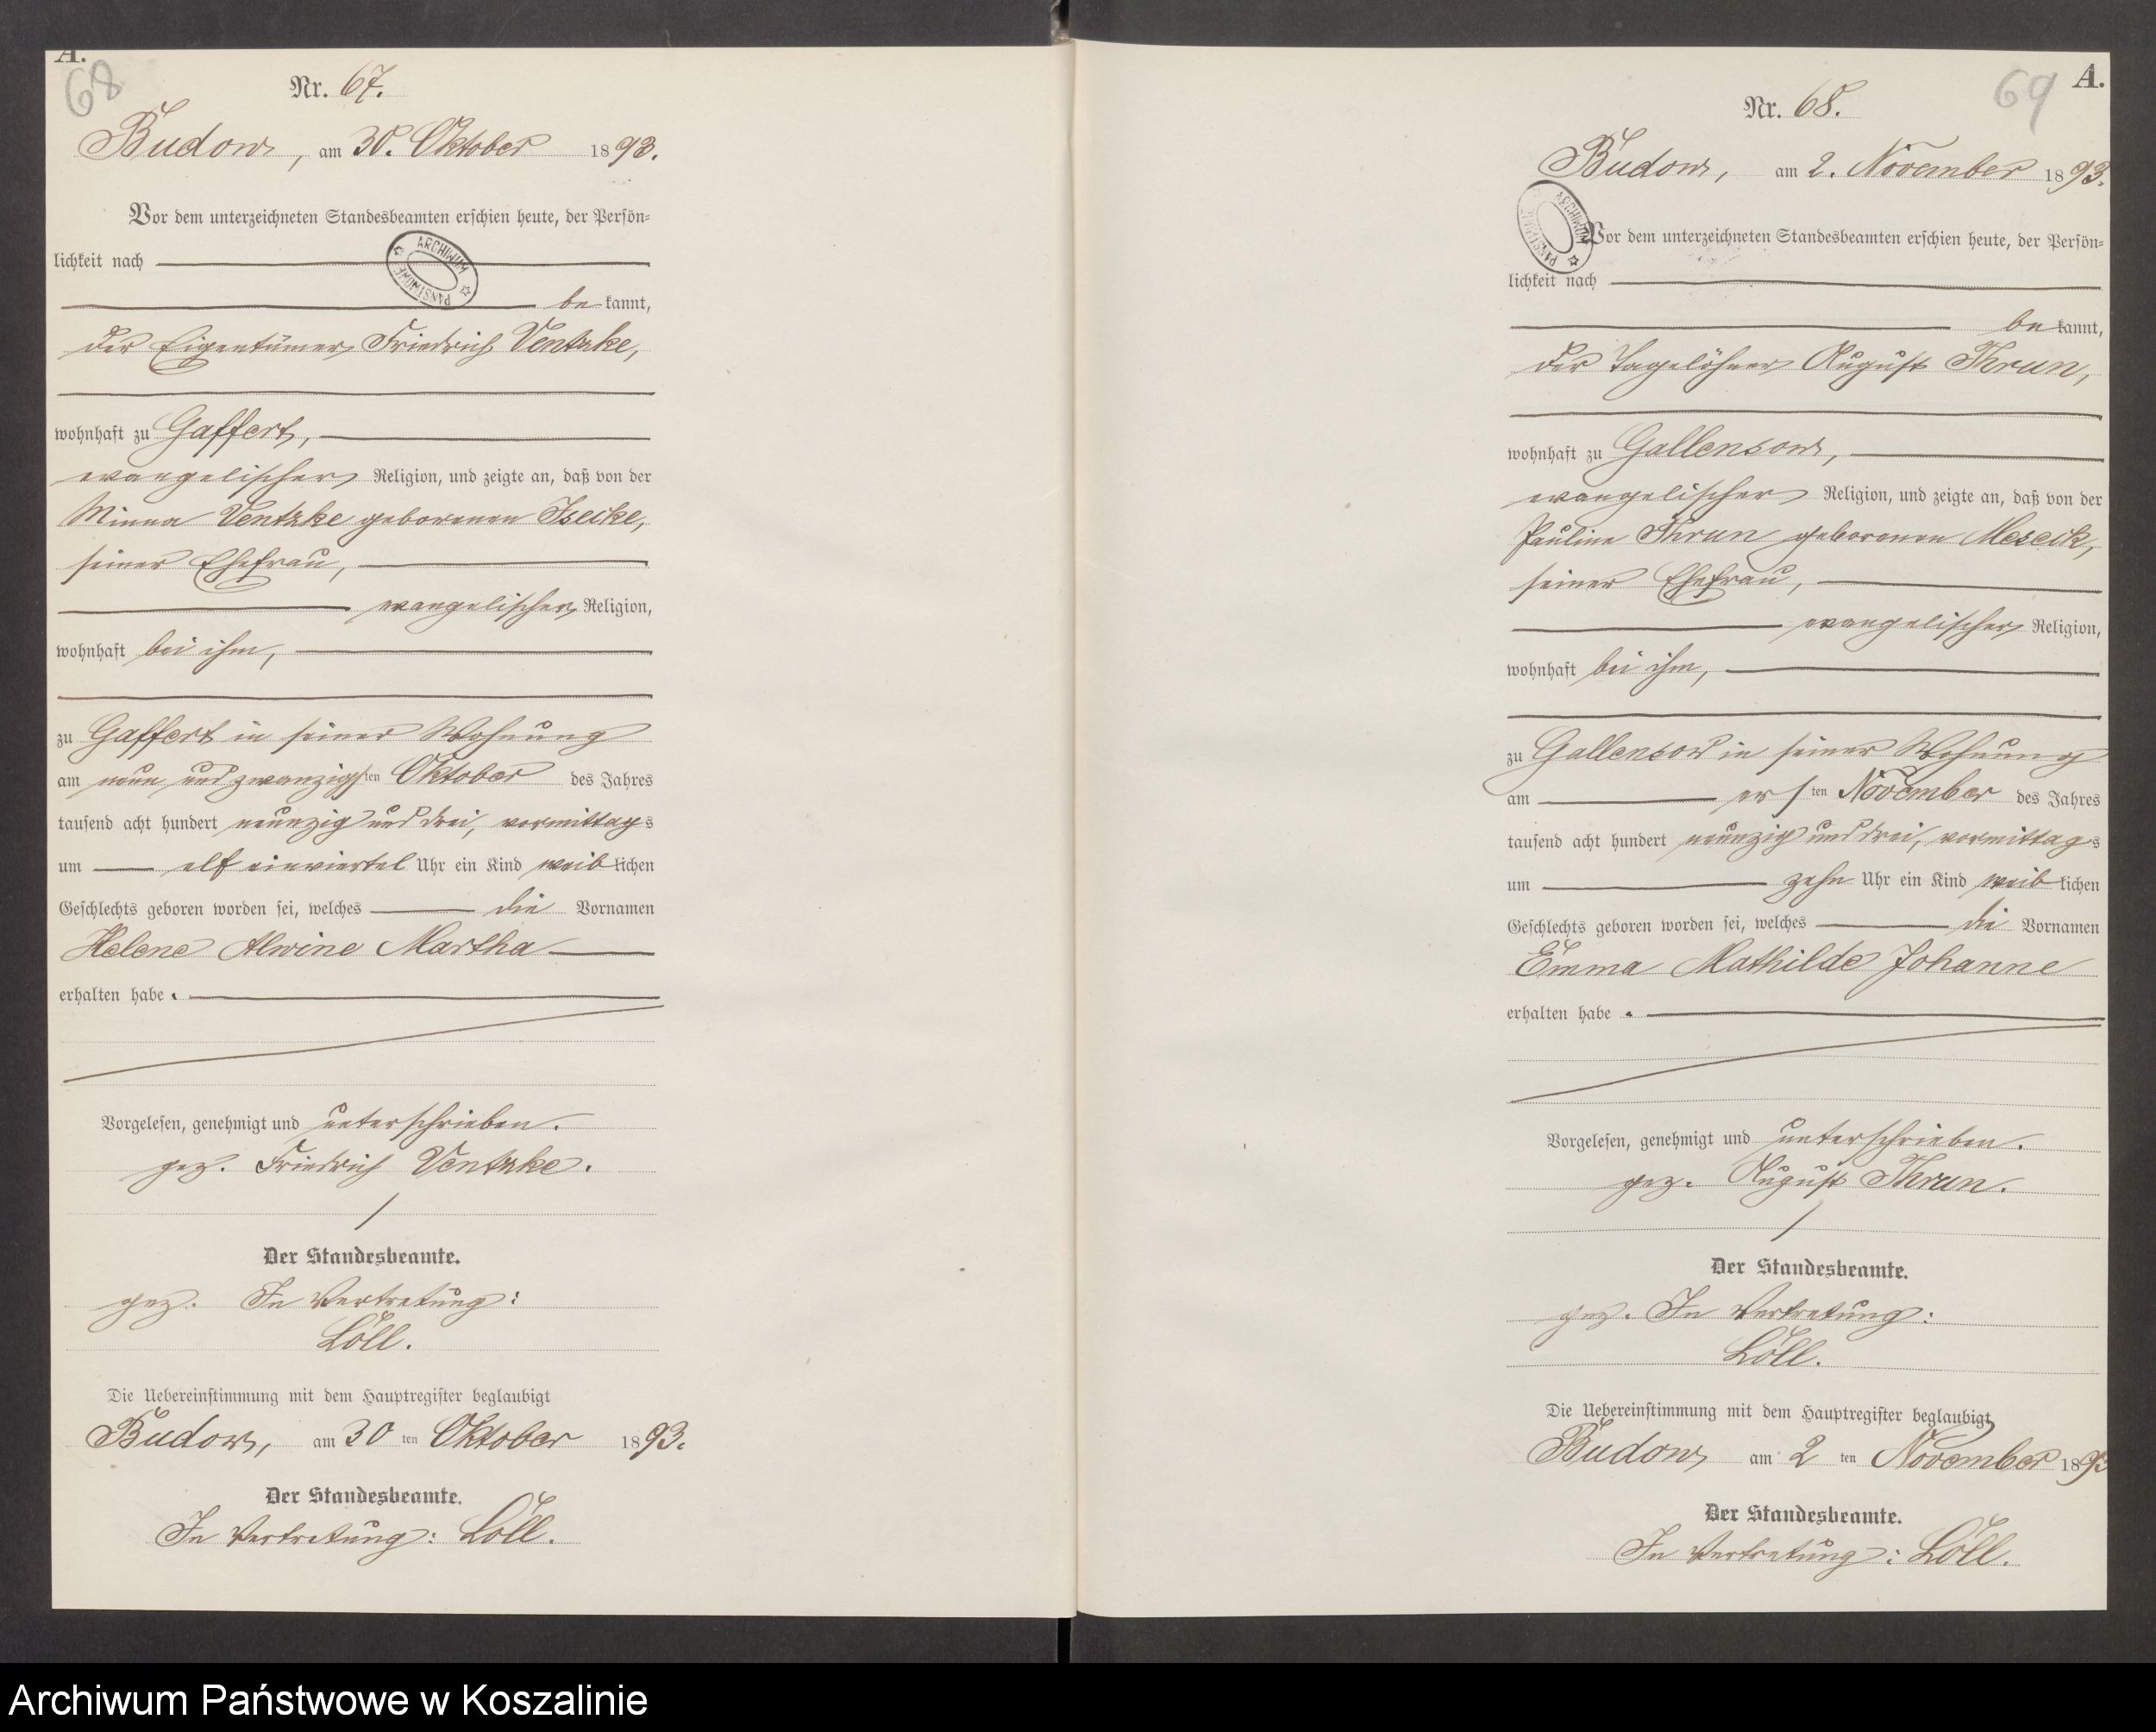 A.
68
Nr. 67.
Budow, am 30. Oktober 1893.
Vor dem unterzeichneten Standesbeamten erschien heute, der Persön=
lichkeit nach
be kannt,
der Eigentümer Friedrich Ventzke,
wohnhaft zu Gaffert,
evangelischer Religion, und zeigte an, daß von der
Minna Ventzke geborenen Isecke,
seiner Ehefrau,
evangelischer Religion,
wohnhaft bei ihm,
zu Gaffert in seiner Wohnung
am neun und zwanzigsten Oktober des Jahres
tausend acht hundert neunzig und drei, vormittags
um elf einviertel Uhr ein Kind weiblichen
Geschlechts geboren worden sei, welches die Vornamen
Helene Alwine Martha
erhalten habe.
Vorgelesen, genehmigt und unterschrieben.
gez. Friedrich Ventzke.
Der Standesbeamte.
gez. In Vertretung:
Löll.
Die Uebereinstimmung mit dem Hauptregister beglaubigt
Budow, am 30 ten Oktober 1893.
Der Standesbeamte.
In Vertretung: Löll.
ARCHIWUM PAŃSTWOWE
69
A.
Nr. 68.
Budow, am 2. November 1893.
Vor dem unterzeichneten Standesbeamten erschien heute, der Persön=
lichkeit nach
be kannt,
der Tagelöhner August Thrun,
wohnhaft zu Gallensow,
evangelischer Religion, und zeigte an, daß von der
Pauline Thrun geborenen Meseck,
seiner Ehefrau,
evangelischer Religion,
wohnhaft bei ihm,
zu Gallensow in seiner Wohnung
am ersten November des Jahres
tausend acht hundert neunzig und drei, vormittags
um zehn Uhr ein Kind weiblichen
Geschlechts geboren worden sei, welches die Vornamen
Emma Mathilde Johanne
erhalten habe.
Vorgelesen, genehmigt und unterschrieben.
gez. August Thrun.
Der Standesbeamte.
gez. In Vertretung:
Löll.
Die Uebereinstimmung mit dem Hauptregister beglaubigt
Budow, am 2 ten November 1893
Der Standesbeamte.
In Vertretung: Löll.
ARCHIWUM PAŃSTWOWE
Archiwum Państwowe w Koszalinie